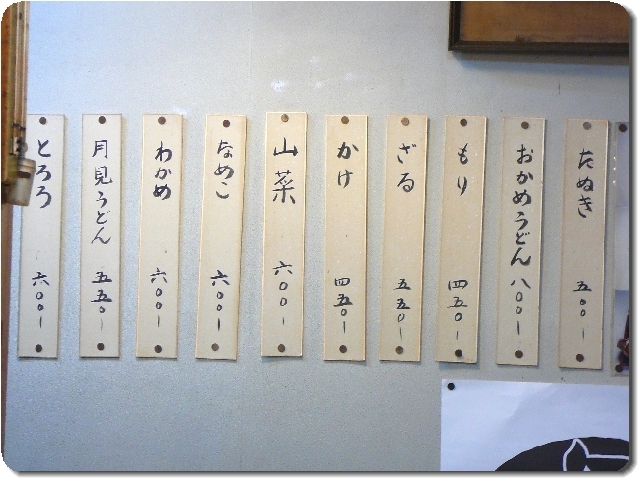 たぬき 五〇〇ー
おかめうどん 八〇〇ー
もり 四五〇ー
ざる 五五〇ー
かけ 四五〇ー
山菜 六〇〇ー
なめこ 六〇〇ー
わかめ 六〇〇ー
月見うどん 五五〇ー
とろろ 六〇〇ー